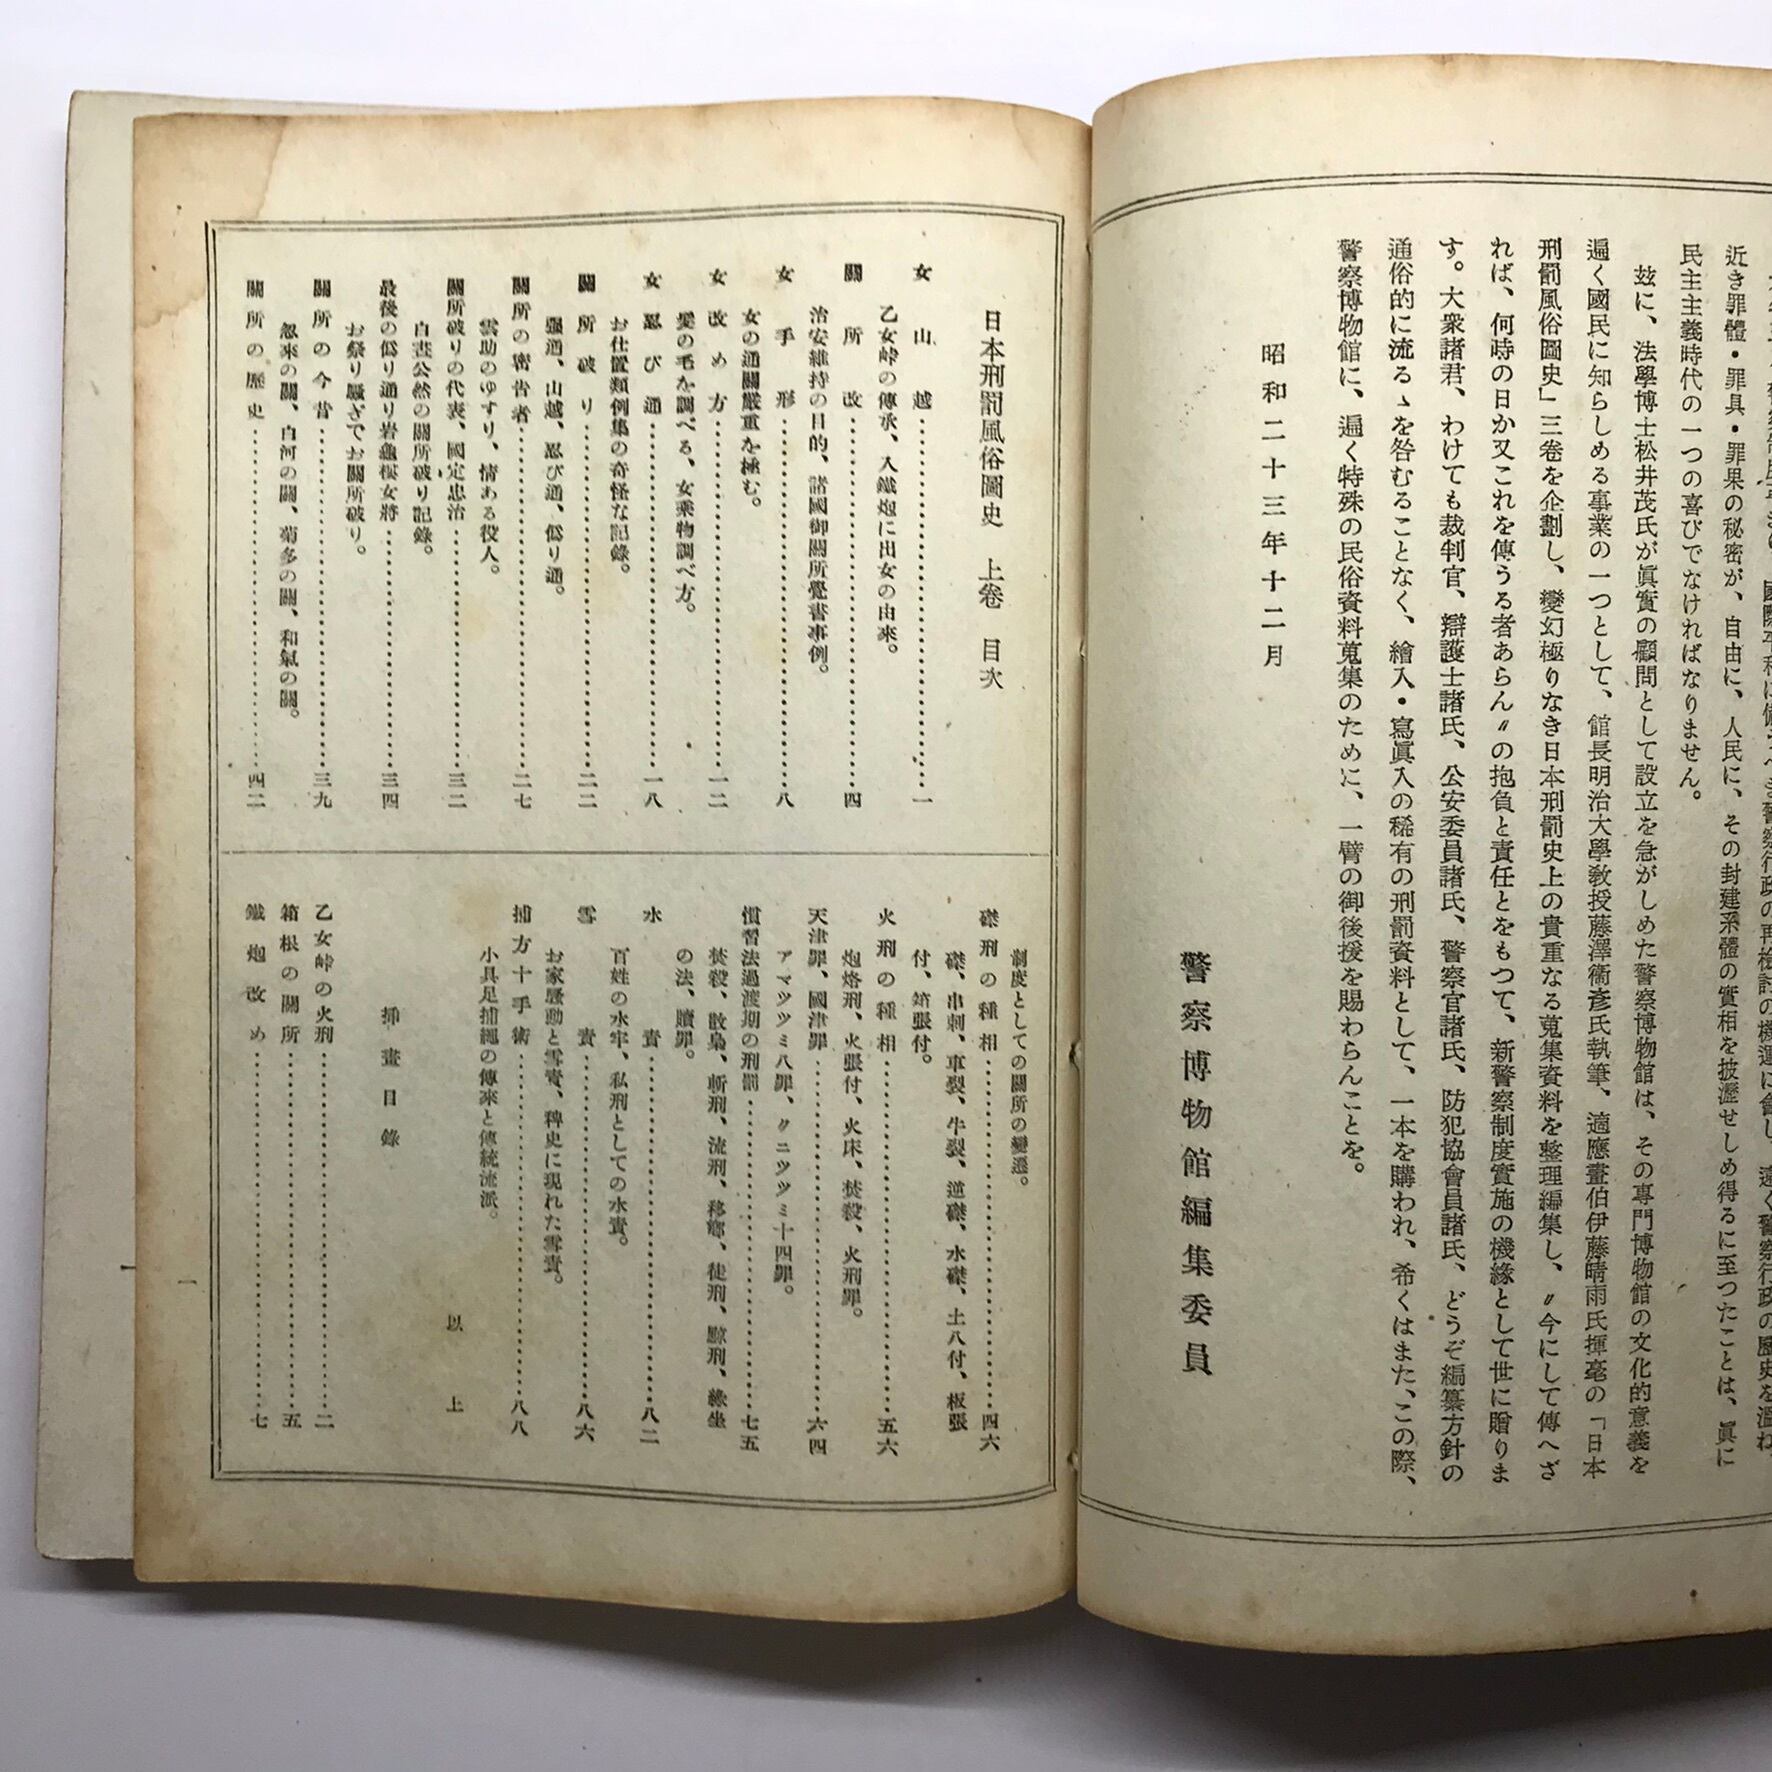 近き罪體・罪具・罪果の秘密が、自由に、人民に、その封建系體の實相を披瀝せしめ得るに至つたことは、眞に
民主主義時代の一つの喜びでなければなりません。
玆に、法學博士松井茂氏が眞實の顧問として設立を急がしめた警察博物館は、その專門博物館の文化的意義を
遍く國民に知らしめる事業の一つとして、館長明治大學敎授藤澤衞彥氏執筆、適應畫伯伊藤晴雨氏揮毫の「日本
刑罰風俗圖史」三卷を企劃し、變幻極りなき日本刑罰史上の貴重なる蒐集資料を整理編集し、〃今にして傳へざ
れば、何時の日か又これを傳うる者あらん〃の抱負と責任とをもつて、新警察制度實施の機緣として世に贈りま
す。大衆諸君、わけても裁判官、辯護士諸氏、公安委員諸氏、警察官諸氏、防犯協會員諸氏、どうぞ編纂方針の
通俗的に流るゝを咎むることなく、繪入・寫眞入の稀有の刑罰資料として、一本を購われ、希くはまた、この際、
警察博物館に、遍く特殊の民俗資料蒐集のために、一臂の御後援を賜わらんことを。
昭和二十三年十二月
警察博物館編集委員
日本刑罰風俗圖史　上卷　目次
女山越……一
乙女峠の傳承、入鐵炮に出女の由來。
關所改……四
治安維持の目的、諸國御關所覺書事例。
女手形……八
女の通關嚴重を極む。
女改め方……一二
髮の毛を調べる、女乘物調べ方。
女忍び通……一八
お仕置類例集の奇怪な記錄。
關所破り……二二
强通、山越、忍び通、僞り通。
關所の密告者……二七
雲助のゆすり、情ある役人。
關所破りの代表、國定忠治……三二
白晝公然の關所破り記錄。
最後の僞り通り岩龜樓女將……三四
お祭り騷ぎでお關所破り。
關所の今昔……三九
忽來の關、白河の關、菊多の關、和氣の關。
關所の歷史……四二
制度としての關所の變遷。
磔刑の種相……四六
磔、串刺、車裂、牛裂、逆磔、水磔、土八付、板張
付、箱張付。
火刑の種相……五六
炮烙刑、火張付、火床、焚殺、火刑罪。
天津罪、國津罪……六四
アマツツミ八罪、クニツツミ十四罪。
慣習法過渡期の刑罰……七五
焚殺、散梟、斬刑、流刑、移鄕、徒刑、黥刑、緣坐
の法、贖罪。
水責……八二
百姓の水牢、私刑としての水責。
雪責……八六
お家騷動と雪責、稗史に現れた雪責。
捕方十手術……八八
小具足捕繩の傳來と傳統流派。
以上
挿畫目錄
乙女峠の火刑……二
箱根の關所……五
鐵炮改め……七
一